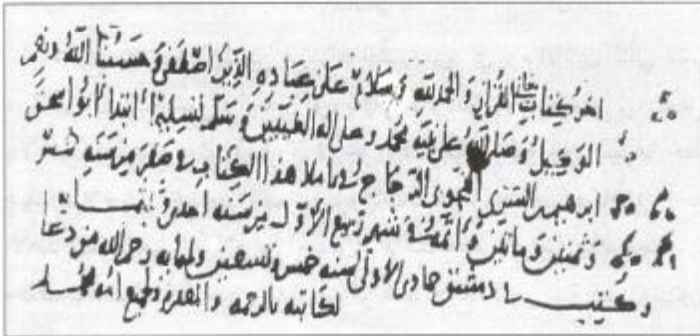 اخر كتاب معاني القران والحمد لله وسلام على عباده الذين اصطفى وحسبنا الله ونعم
الوكيل وصلى الله على نبيه محمد وعلى اله الطيبين وسلم تسليما ابتدا أبو اسحق
ابرهيم بن السري النحوي الزجاج في املا هذا الكتاب في صفر من سنه خمس
وثمنين ومائتين وأتمه في شهر ربيع الأول من سنه احدى وثلثمايه
وكتب بدمشق جمادى الاولى لسنه خمس وتسعين وثلثمايه رحم الله من دعا
لكاتبه بالرحمه والمغفره ولجميع امه محمد